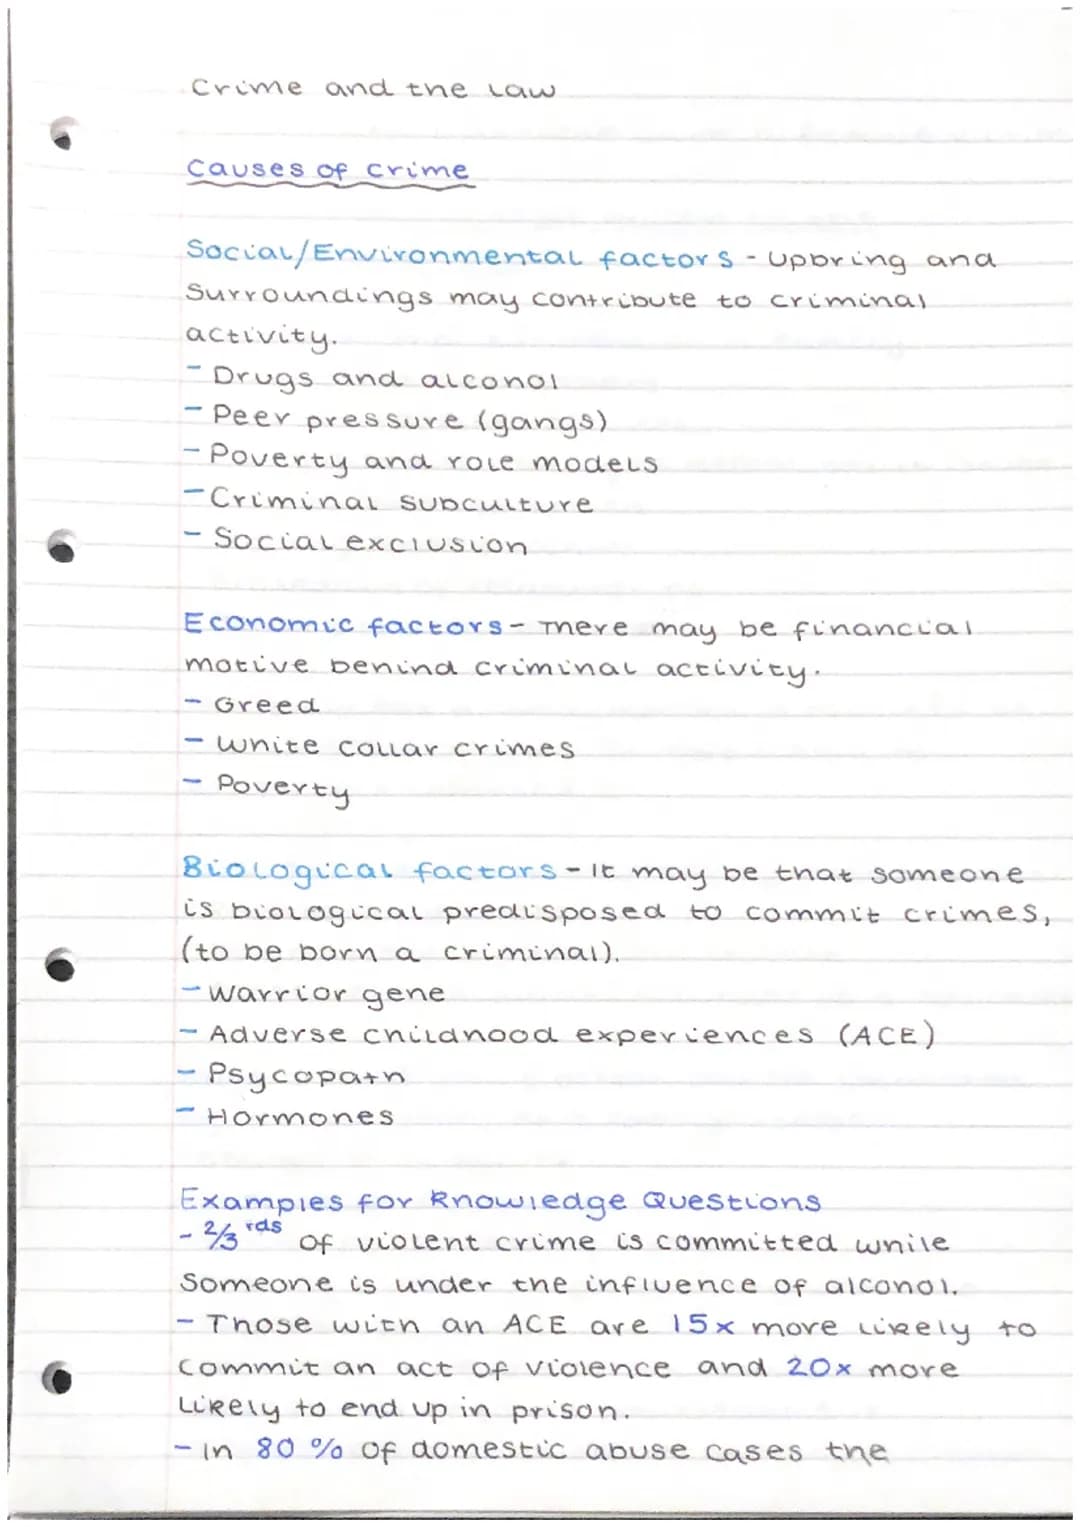 Crime and the Law
Causes of crime
Social/Environmental factors - upbring and
surroundings may contribute to criminal
activity.
- Drugs and alcohol
- Peer pressure (gangs)
- Poverty and role models
- Criminal subculture
- Social exclusion
Economic factors - There may be financial
motive behind criminal activity.
- Greed
- White collar crimes
- Poverty
Biological factors - It may be that someone
is biological predisposed to commit crimes,
(to be born a criminal).
- Warrior gene
- Adverse childhood experiences (ACE)
- Psycopath
- Hormones
Examples for Knowledge Questions
- 2/3 rds of violent crime is committed while
someone is under the influence of alcohol.
- Those with an ACE are 15x more likely to
commit an act of violence and 20x more
likely to end up in prison.
- In 80 % of domestic abuse cases the